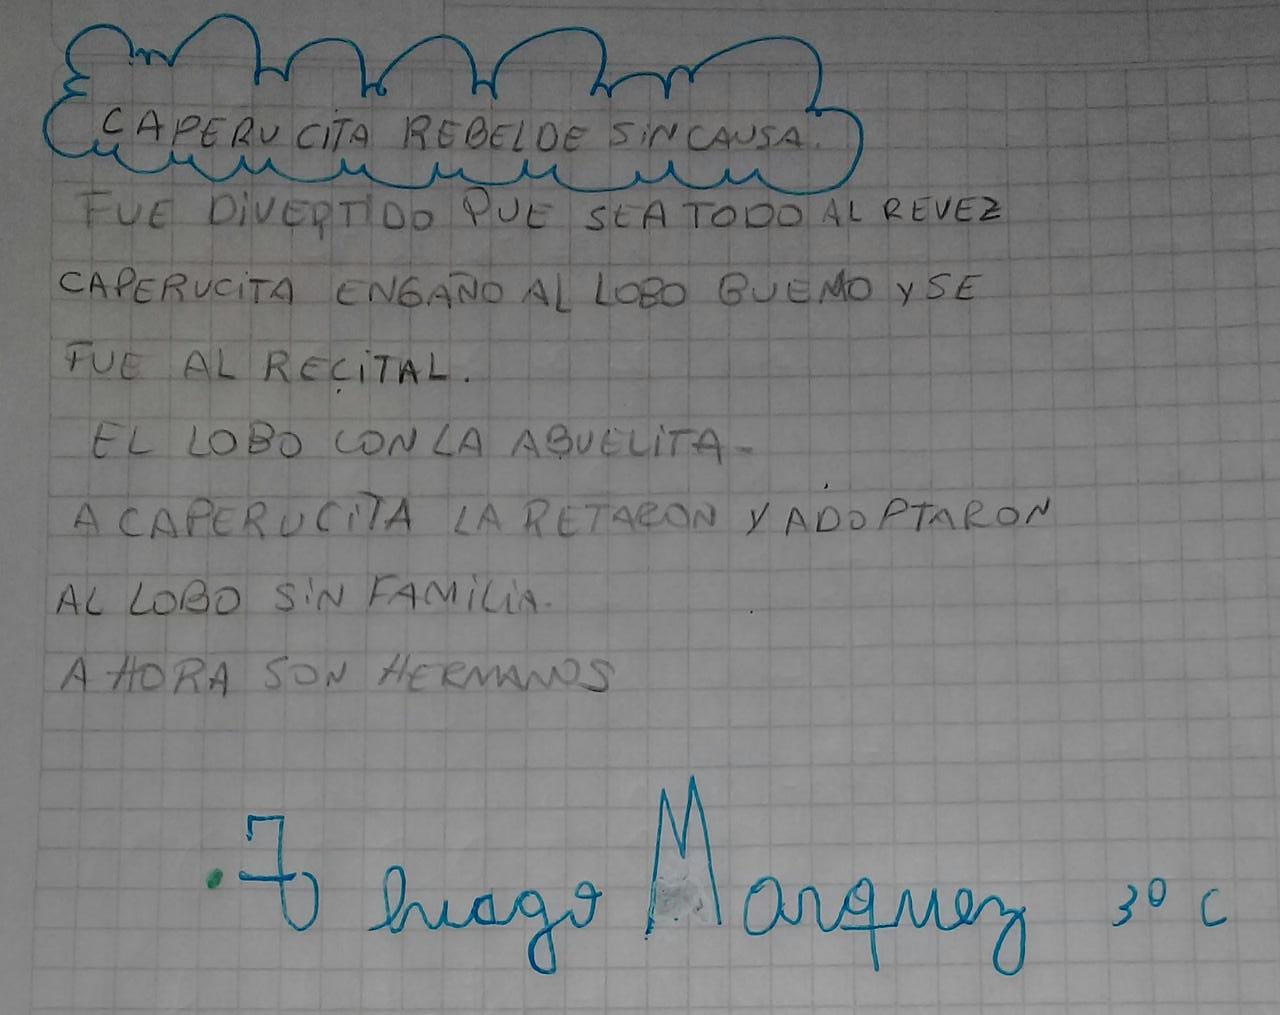 CAPERUCITA REBELDE SIN CAUSA.
FUE DIVERTIDO QUE SEA TODO AL REVEZ
CAPERUCITA ENGAÑO AL LOBO BUENO Y SE
FUE AL RECITAL.
EL LOBO CON LA ABUELITA-
A CAPERUCITA LA RETARON Y ADOPTARON
AL LOBO SIN FAMILIA.
AHORA SON HERMANOS
Thiago Marquez 3º C